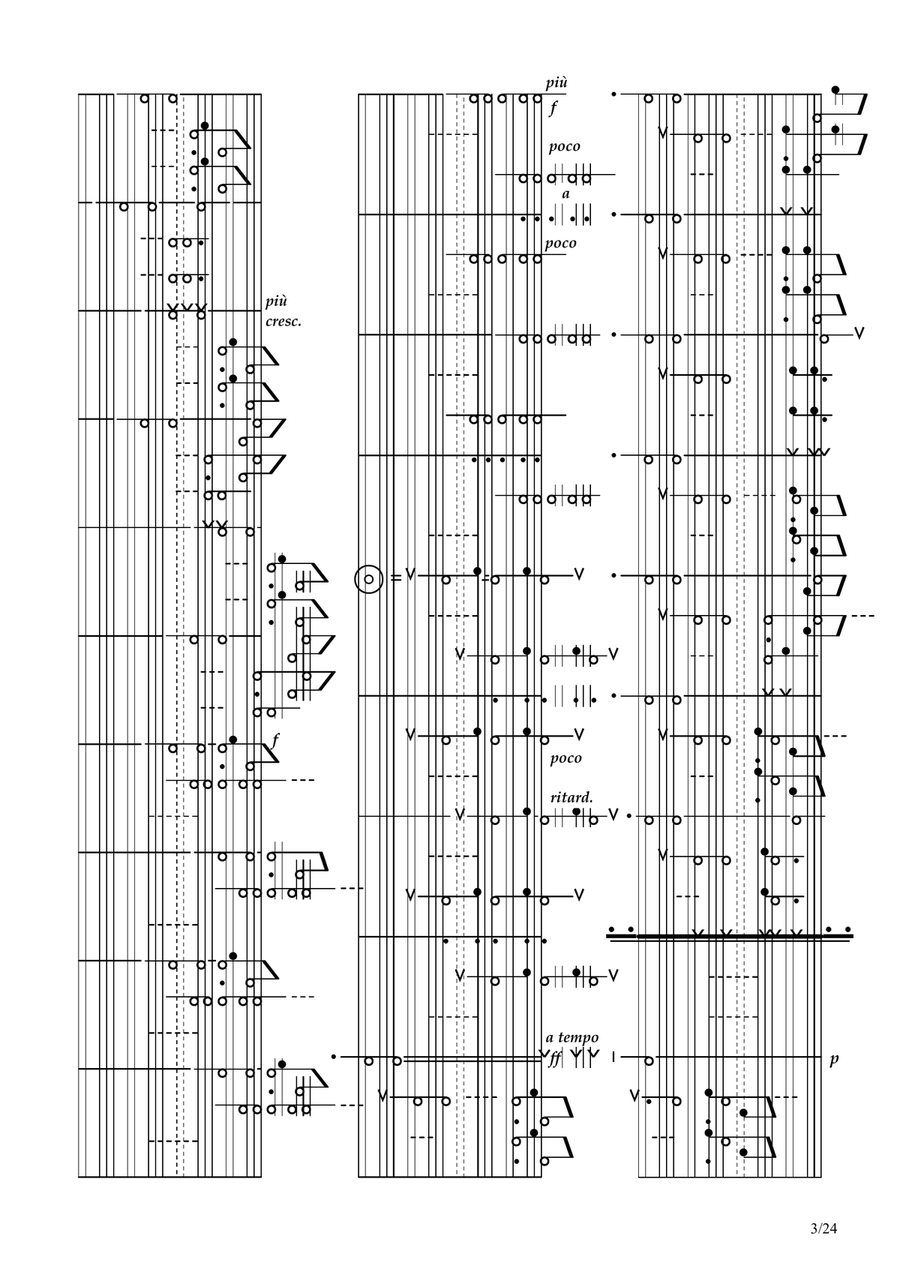 più
cresc.
f
più
f
poco
a
poco
poco
ritard.
a tempo
ff
p
3/24